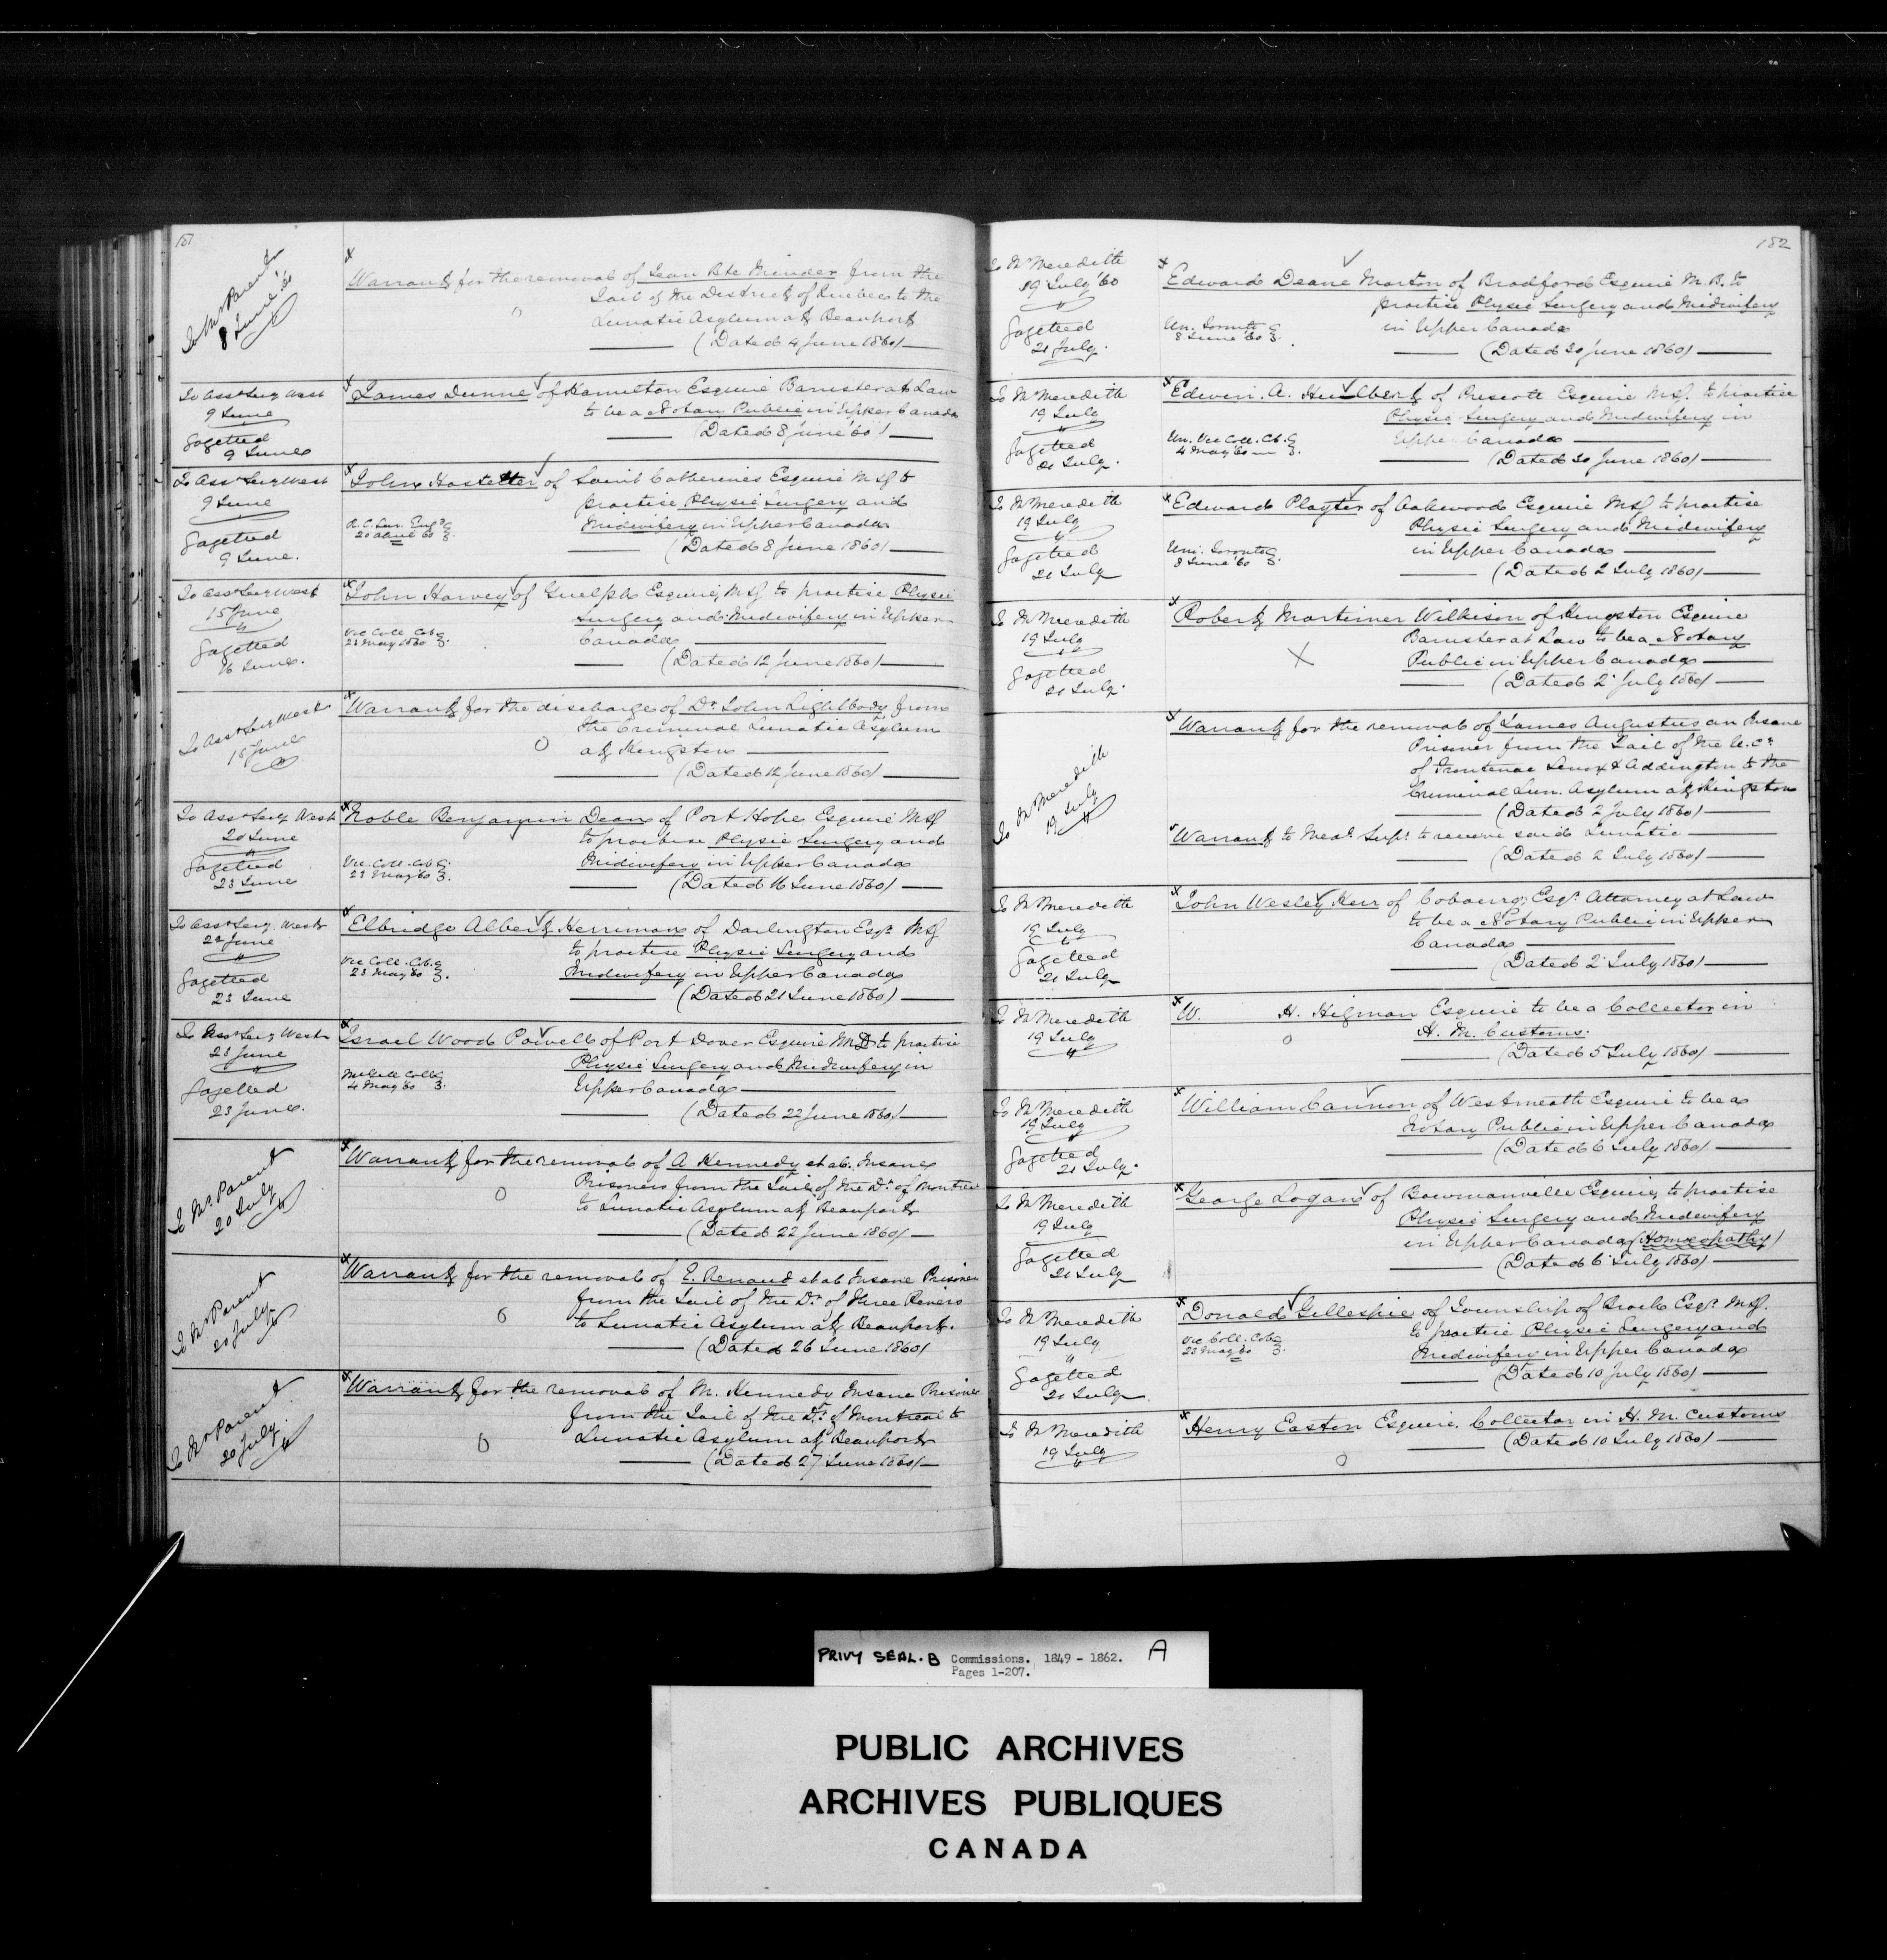 181
To Mr Parent
8 June '60
Warrant for the removal of Jean Bte from the
Jail of the District of Quebec to the
Lunatic Asylum at Beauport
(Dated 4 June 1860)
To Asst Secy West
9 June
Gazetted
9 June
James Dunne of Hamilton Esquire Barrister at Law
to be a Notary Public in Upper Canada
(Dated 8 June '60)
To Asst Secy West
9 June
Gazetted
9 June.
John Hostetter of Saint Catherines Esquire to
practise Physic Surgery and
Midwifery in Upper Canada
R. C. Sur. Engd
20 '60
(Dated 8 June 1860)
To Asst Secy West
15 June
Gazetted
16 June.
John Harvey of Guelph Esquire, to practise Physic
Surgery and Midwifery in Upper
Canada
Vic Coll Cob.
23 May 1860
(Dated 12 June 1860)
To Asst Secy West
15 June
Warrant for the discharge of Dr John Lightbody from
the Criminal Lunatic Asylum
at Kingston
(Dated 12 June 1860)
To Asst Secy West
20 June
Gazetted
23 June
Noble Benjamin Dean of Port Hope Esquire
to practise Physic Surgery and
Midwifery in Upper Canada
Vic. Coll. Cob.
23 May '60
(Dated 16 June 1860)
To Asst Secy West
22 June
Gazetted
23 June
Elbridge Albert Herriman of Darlington Esqr.
to practise Physic Surgery and
Midwifery in Upper Canada
Vic Coll. Cob.
23 May '60
(Dated 21 June 1860)
To Asst Secy West
23 June
Gazetted
23 June.
Israel Wood Powell of Port Dover Esquire M.D to practise
Physic Surgery and Midwifery in
Upper Canada
McGill Coll
4 May '60
(Dated 22 June 1860)
To Mr Parent
20 July
Warrant for the removal of A Kennedy et al. Insane
Prisoners from the Jail of the Dt. of Montreal
to Lunatic Asylum at Beauport
(Dated 22 June 1860)
To Mr Parent
20 July
Warrant for the removal of E. Renaud et al Insane Prisoner
from the Jail of the Dt. of Three Rivers
to Lunatic Asylum at Beauport.
(Dated 26 June 1860)
To Mr Parent
20 July
Warrant for the removal of M. Kennedy Insane Prisoner
from the Jail of the Dt. of Montreal to
Lunatic Asylum at Beauport
(Dated 27 June 1860)
182
To Mr Meredith
19 July '60
Gazetted
21 July.
Edward Deane Morton of Bradford Esquire M.B. to
practise Physic Surgery and Midwifery
in Upper Canada
Un. Toronto
8 June '60
(Dated 30 June 1860)
To Mr Meredith
19 July
Gazetted
21 July.
Edwin. A. Hulbert of Prescott Esquire to practise
Physic Surgery and Midwifery in
Upper Canada
Un. Vic Coll. Cb.
4 May 60
(Dated 30 June 1860)
To Mr Meredith
19 July
Gazetted
21 July
Edward Playter of Oakwood Esquire to practise
Physic Surgery and Midwifery
in Upper Canada
Uni. Toronto
8 June '60
(Dated 2 July 1860)
To Mr Meredith
19 July
Gazetted
21 July.
Robert Mortimer Wilkison of Kingston Esquire
Barrister at Law to be a Notary
Public in Upper Canada
(Dated 2 July 1860)
To Mr Meredith
19 July
Warrant for the removal of James Augustus an Insane
Prisoner from the Jail of the U. Cs.
of Frontenac Lenox & Addington to the
Criminal Lun. Asylum at Kingston
(Dated 2 July 1860)
Warrant to Medl. Supt. to receive said Lunatic
(Dated 2 July 1860)
To Mr Meredith
19 July
Gazetted
21 July
John Wesley Kerr of Cobourg, Esqr. Attorney at Law
to be a Notary Public in Upper
Canada
(Dated 2 July 1860)
To Mr Meredith
19 July
W. H. Higman Esquire to be a Collector in
H. M. Customs.
(Dated 5 July 1860)
To Mr Meredith
19 July
Gazetted
21 July.
William Cannon of Westmeath Esquire to be a
Notary Public in Upper Canada
(Dated 6 July 1860)
To Mr Meredith
19 July
Gazetted
21 July
George Logan of Bowmanville Esquire, to practise
Physic Surgery and Midwifery
in Upper Canada (Homœopathy)
(Dated 6 July 1860)
To Mr Meredith
19 July
Gazetted
21 July
Donald Gillespie of Township of Brock Esqr.
to practice Physic Surgery and
Midwifery in Upper Canada
Vic Coll. Cob
23 May 60
(Dated 10 July 1860)
To Mr Meredith
19 July
Henry Easton Esquire. Collector in H. M. Customs
(Dated 10 July 1860)
PRIVY SEAL. B Commissions. 1849 - 1862. A
Pages 1-207.
PUBLIC ARCHIVES
ARCHIVES PUBLIQUES
CANADA